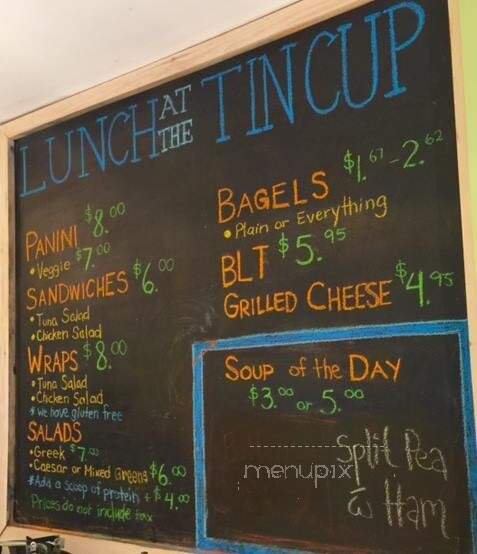 LUNCH AT THE TIN CUP
PANINI $8.00
• Veggie $7.00
SANDWICHES $6.00
• Tuna Salad
• Chicken Salad
WRAPS $8.00
• Tuna Salad
• Chicken Salad
* we have gluten free
SALADS
• Greek $7.00
• Caesar or Mixed Greens $6.00
* Add a scoop of protein + $4.00
Prices do not include tax
BAGELS $1.67 - 2.62
• Plain or Everything
BLT $5.95
GRILLED CHEESE $4.95
SOUP of the DAY
$3.00 or 5.00
Split Pea
w/ Ham
menupix